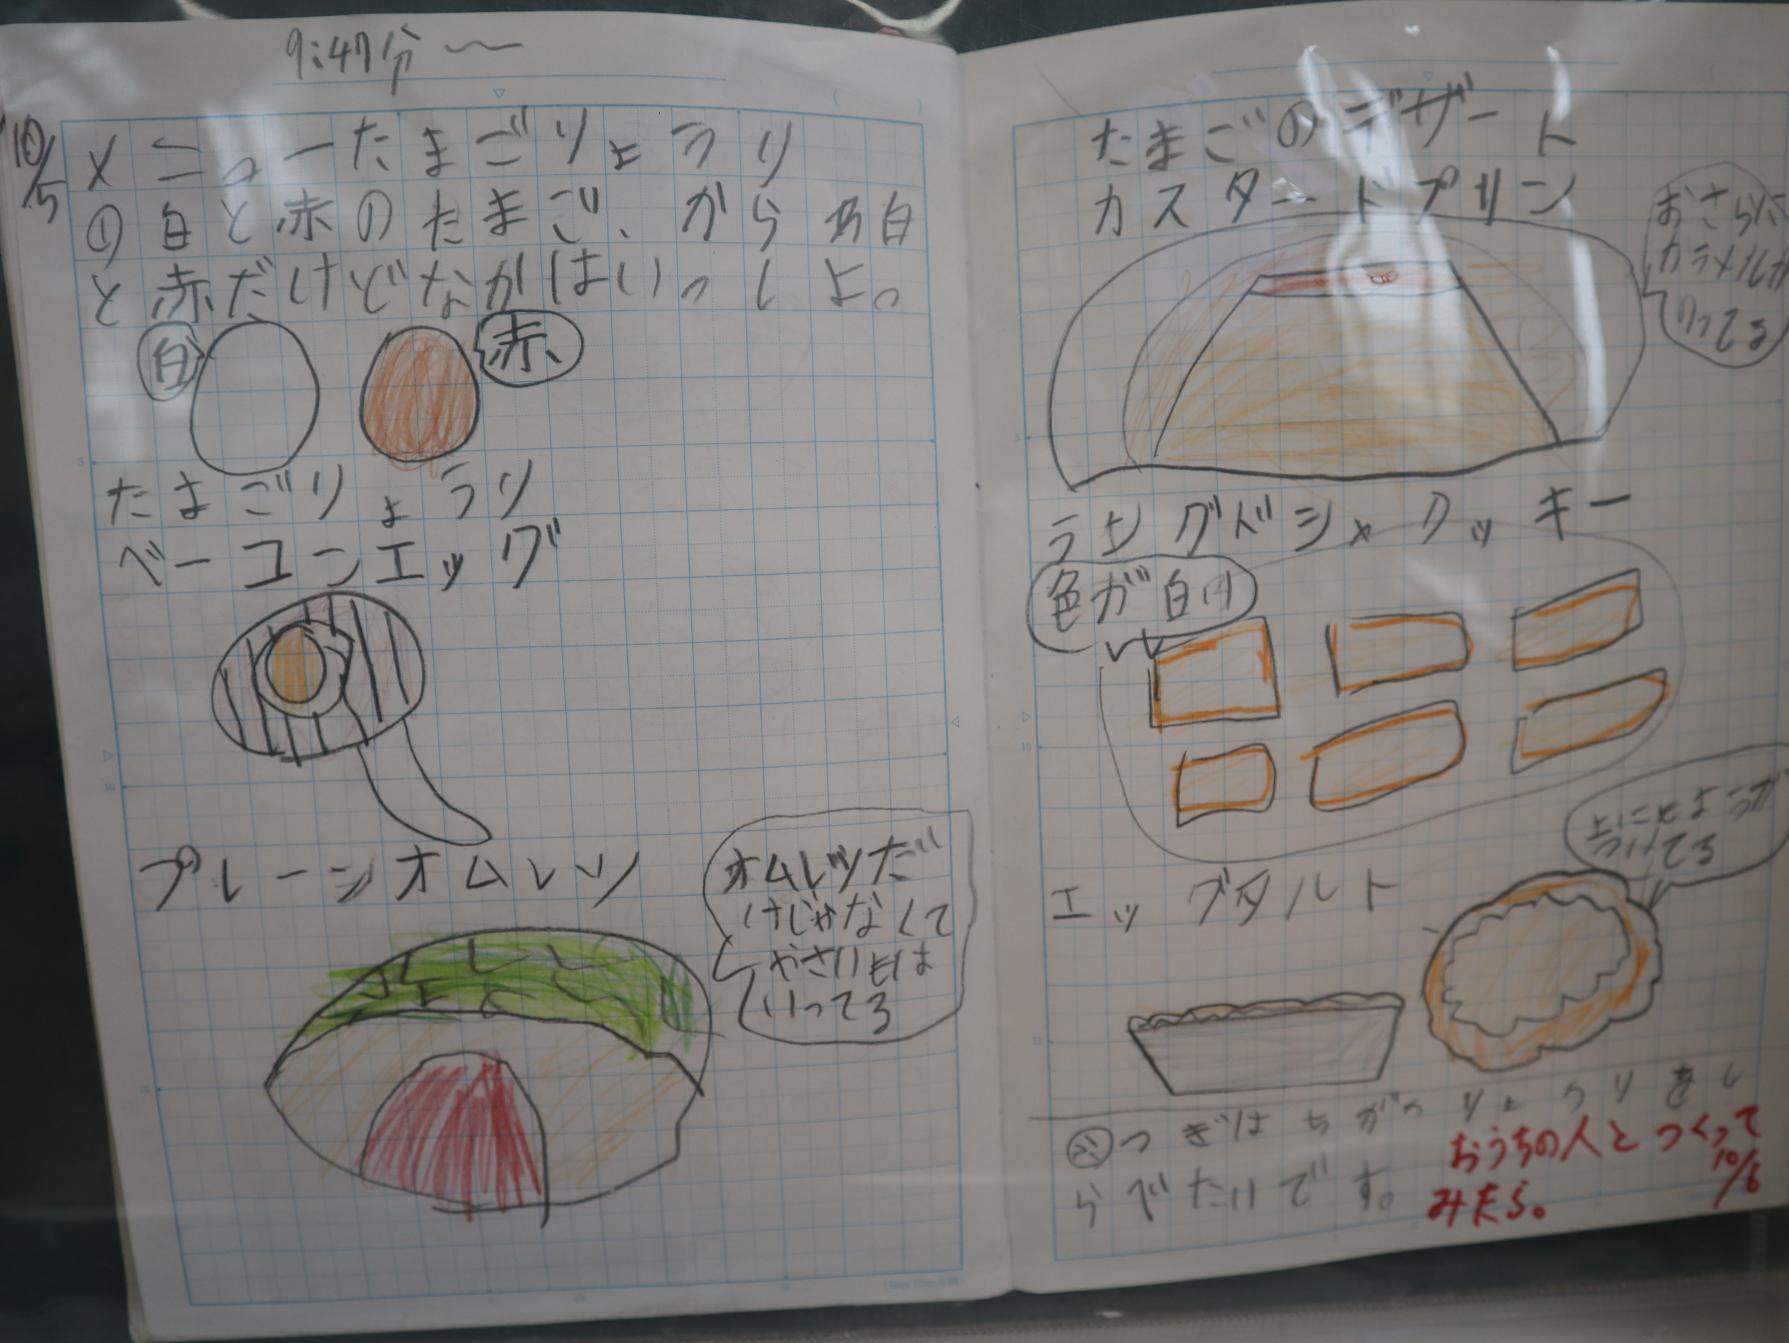 9:47分〜
10/5
メニューたまごりょうり
の白と赤のたまご、からわ白
と赤だけどなかはいっしょ。
白
赤
たまごりょうり
ベーコンエッグ
プレーンオムレツ
オムレツだ
けじゃなくて
やさいもは
いってる
たまごのデザート
カスタードプリン
おさらに
カラメルが
のってる
ラングドシャクッキー
色が白い
エッグタルト
つぎはちがうりょうりをし
らべたいです。
おうちの人とつくって
みたら。
10/6